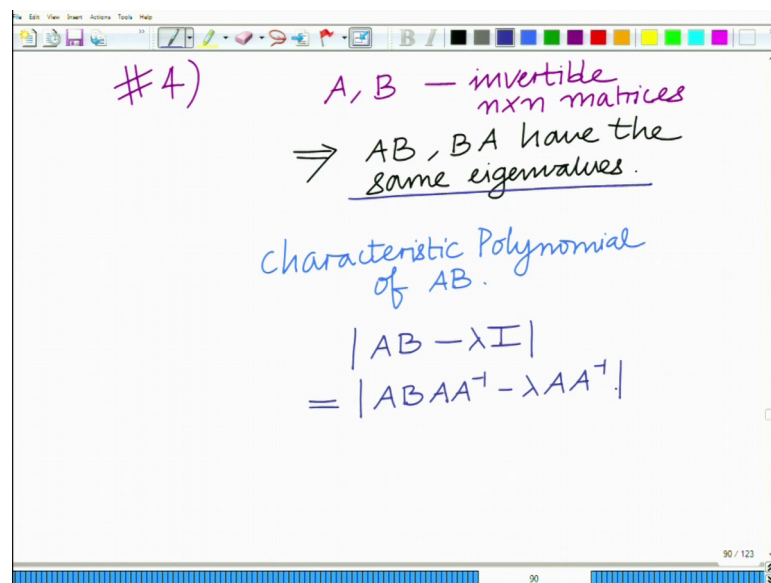 File Edit View Insert Actions Tools Help
#4) A, B — invertible
n×n matrices
⇒ AB, BA have the
same eigenvalues.
Characteristic Polynomial
of AB.
|AB − λI|
= |ABAA⁻¹ − λAA⁻¹.|
90 / 123
90